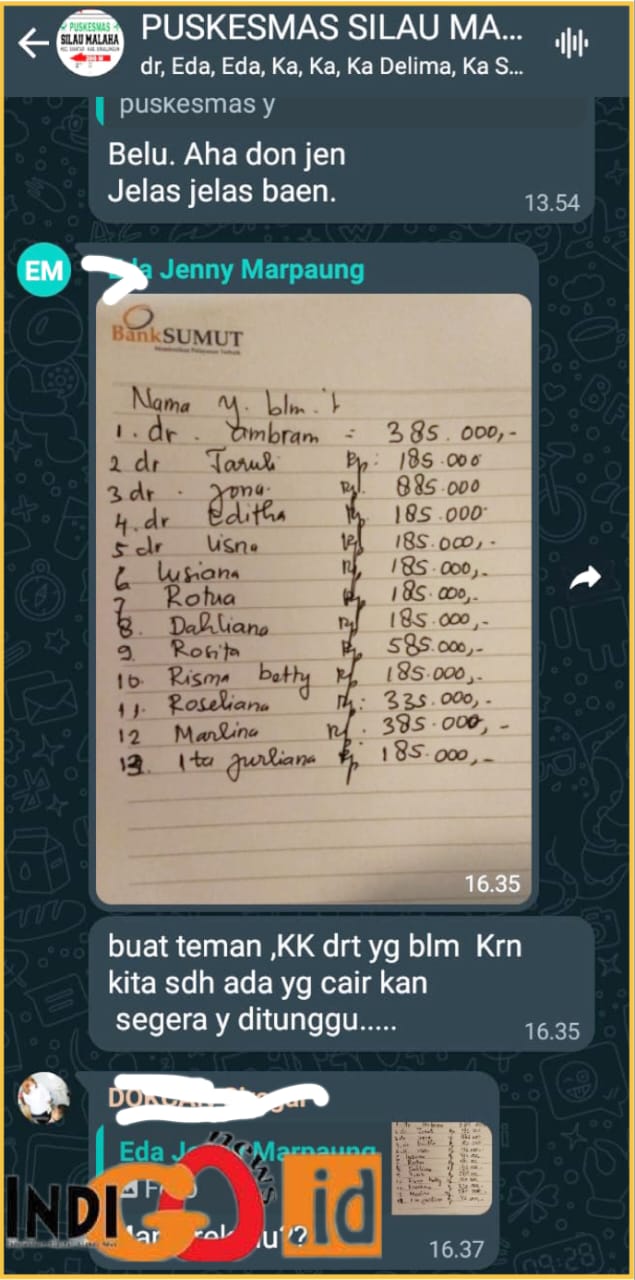 PUSKESMAS
SILAU MALAHA
PUSKESMAS SILAU MA...
dr, Eda, Eda, Ka, Ka, Ka Delima, Ka S...
puskesmas y
Belu. Aha don jen
Jelas jelas baen.
13.54
EM
Jenny Marpaung
BankSUMUT
Nama y. blm.
1. dr. Ambram = 385.000,-
2 dr Taruli Rp: 185.000
3 dr. Jona. Rp. 885.000
4. dr Editha Rp. 185.000
5 dr Lisna Rp 185.000,-
6 Lusiana Rp, 185.000,-
7 Rotua Rp 185.000,-
8. Dahliana Rp 185.000,-
9. Rosita Rp 585.000,-
10. Risma betty Rp 185.000,-
11. Roseliana Rp: 335.000,-
12 Marlina Rp. 385.000,-
13. Ita Jurliana Rp 185.000,-
16.35
buat teman ,KK drt yg blm Krn
kita sdh ada yg cair kan
segera y ditunggu.....
16.35
Eda
Marpaung
news
INDIGO.id
16.37